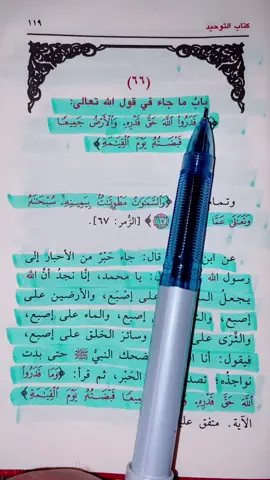 كتاب التوحيد
١١٩
(٦٦)
بابُ ما جاء في قول الله تعالى:
قَدَرُوا۟ ٱللَّهَ حَقَّ قَدْرِهِۦ وَٱلْأَرْضُ جَمِيعًا
قَبْضَتُهُۥ يَوْمَ ٱلْقِيَٰمَةِ﴾
﴿وَٱلسَّمَٰوَٰتُ مَطْوِيَّٰتٌۢ بِيَمِينِهِۦ ۚ سُبْحَٰنَهُۥ
وَتَعَٰلَىٰ عَمَّا ٦٧﴾ [الزُّمر: ٦٧].
عن ابن قال: جاء حَبْرٌ من الأحبار إلى
رسول الله يا محمد، إنَّا نجدُ أنَّ الله
يجعلُ على إصْبَع، والأرَضين على
إصبع على إصبع، والماء على إصبع،
والثَّرَى على وسائرَ الخلق على إصبع،
فيقول: أنا ضحك النبيُّ ﷺ حتى بدت
نواجذُه؛ الحَبْر، ثم قرأ: ﴿وَمَا قَدَرُوا۟
ٱللَّهَ حَقَّ قَدْرِهِۦ جَمِيعًا قَبْضَتُهُۥ يَوْمَ ٱلْقِيَٰمَةِ﴾
الآية. متفق